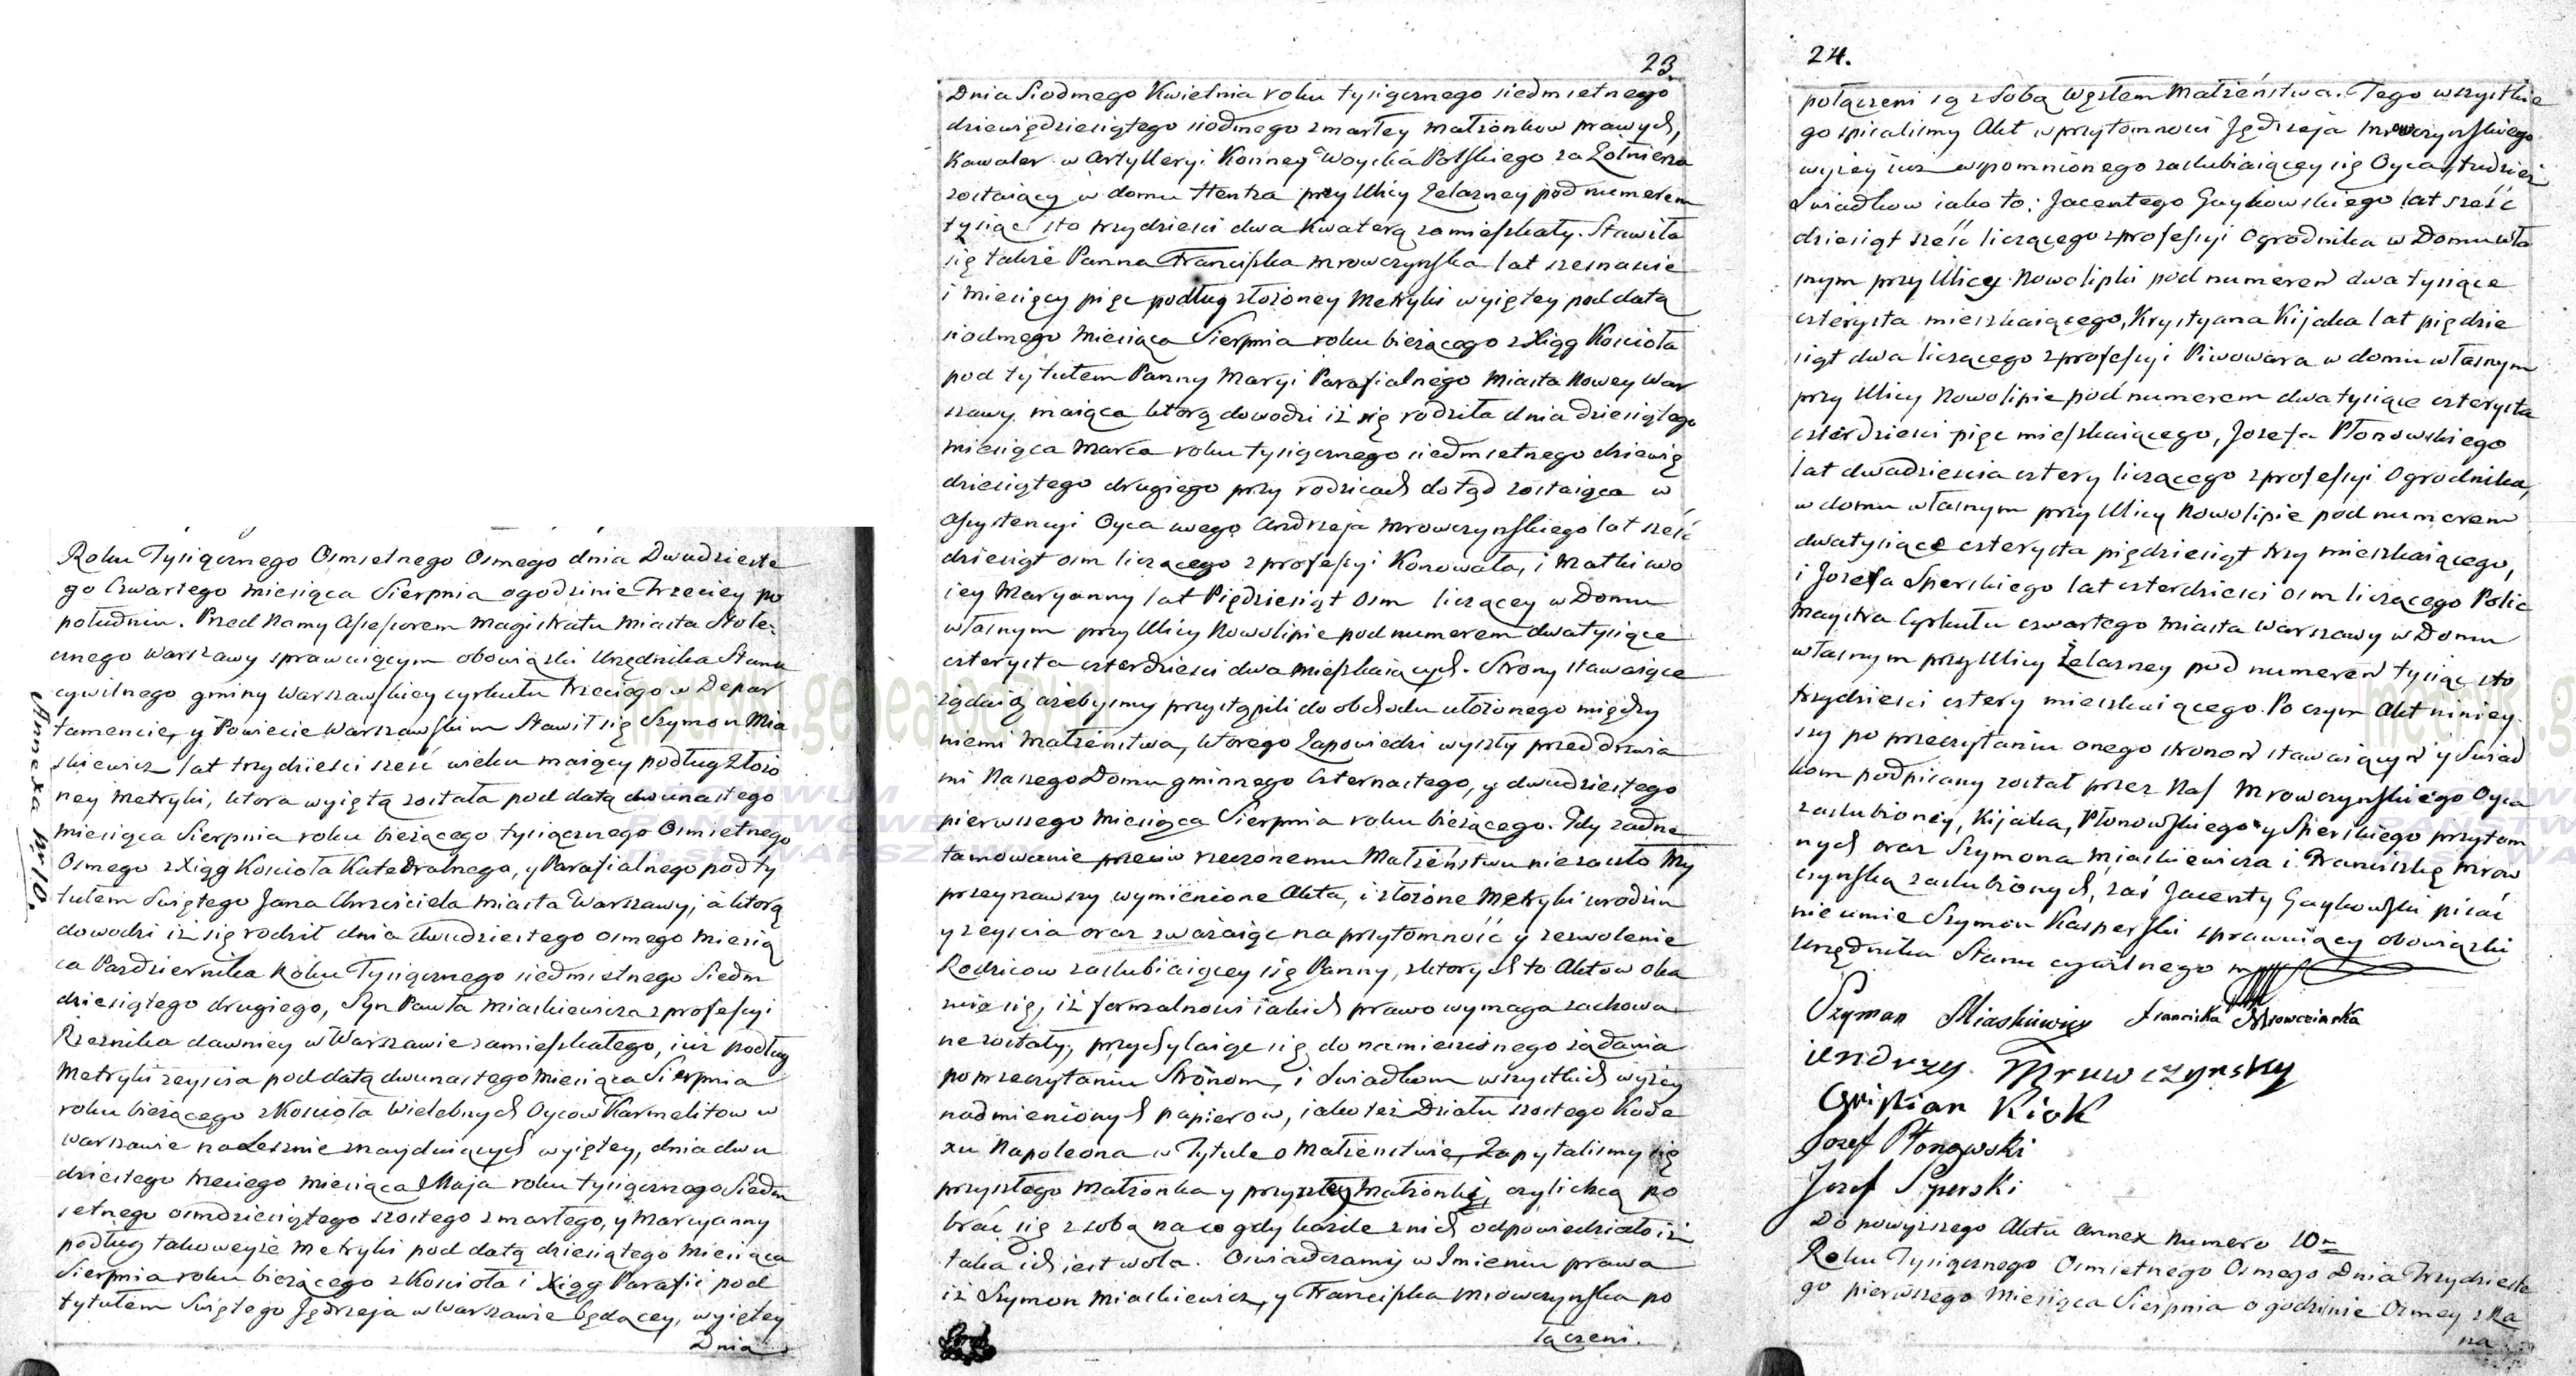 Roku Tysiącznego Osmsetnego Osmego dnia Dwudzieste
go Czwartego Miesiąca Sierpnia o godzinie Trzeciey po
południu. Przed Namy Assessorem Magistratu Miasta Stołe
cznego Warszawy sprawuiącym obowiązki Urzędnika Stanu
cywilnego gminy Warszawskiey cyrkułu trzeciego w Depar
tamencie, y Powiecie Warszawskim Stawił się Szymon Mia
skiewicz lat trzydzieści sześć wieku maiący podług złożo
ney Metryki, ktora wyiętą została pod datą dwunastego
Miesiąca Sierpnia roku bieżącego tysiącznego Osmsetnego
Osmego z Xiąg Kościoła Katedralnego, y Parafialnego pod ty
tułem Swiętego Jana Chrzciciela Miasta Warszawy, a ktorą
dowodzi iż się rodził dnia dwudziestego osmego Miesią
ca Pazdziernika Roku Tysiącznego siedmsetnego Siedm
dziesiątego drugiego, Syn Pawła Miaskiewicza z profesyi
Rzeznika dawniey w Warszawie zamieszkałego, iuż podług
Metryki zeyscia pod datą dwunastego Miesiąca Sierpnia
roku bieżącego z Kościoła Wielebnych Oycow Karmelitow w
Warszawie na Lesznie znayduiących wyiętey, dnia dwu
dziestego trzeciego miesiąca Maja roku tysiącznego Siedm
setnego osmdziesiątego szostego zmarłego, y Maryanny
podług takoweyże Metryki pod datą dziesiątego Miesiąca
Sierpnia roku bieżącego z Kościoła i Xiąg Parafii pod
tytułem Swiętego Jędrzeja w Warszawie będącey, wyiętey
Dnia
Annexa Nr 10.
23.
Dnia Siodmego Kwietnia roku tysiącznego siedmsetnego
dziewiędziesiątego siodmego zmarłey małżonkow prawych,
Kawaler w Artylleryi Konney Woyska Polskiego za Żołnierza
zostaiący w domu Hentza przy Ulicy Żelazney pod numerem
tysiąc sto trzydzieści dwa Kwaterą zamieszkały. Stawiła
się także Panna Franciszka Mrowczynska lat szesnaście
i Miesięcy pięć podług złożoney Metryki wyiętey pod datą
siodmego Miesiąca Sierpnia roku bieżącego z Xiąg Kościoła
pod tytułem Panny Maryi Parafialnego Miasta Nowey War
szawy maiąca ktorą dowodzi iż się rodziła dnia dziesiątego
Miesiąca Marca roku tysiącznego siedmsetnego dziewię
dziesiątego drugiego przy rodzicach dotąd zostaiąca w
Assystencyi Oyca swego Andrzeja Mrowczynskiego lat sześć
dziesiąt osm liczącego z profesyi Konowała, i Matki swo
iey Maryanny lat Pięćdziesiąt Osm liczącey w Domu
własnym przy Ulicy Nowolipie pod numerem dwatysiące
czterysta czterdzieści dwa mieszkaiących. Strony stawaiące
żądaią ażebysmy przystąpili do obchodu ułożonego między
niemi Małżeństwa, ktorego Zapowiedzi wyszły przed drzwia
mi Naszego Domu gminnego Czternastego, y dwudziestego
pierwszego Miesiąca Sierpnia roku bieżącego. Gdy żadne
tamowanie przeciw rzeczonemu Małżeństwu nie zaszło My
przeyrzawszy wymienione Akta, i złożone Metryki urodzin
y zeyscia oraz zważaiąc na przytomność y zezwolenie
Rodzicow zaslubiaiącey się Panny, z ktorych to Aktow oka
zuie się, iż formalności iakich prawo wymaga zachowa
ne zostały, przychylaiąc się do namienionego żądania
po przeczytaniu Stronom, i Swiadkom wszystkich wyżey
nadmienionych papierow, iako też Działu szostego Kode
xu Napoleona w Tytule o Małżeństwie, Zapytalismy się
przyszłego Małżonka y przyszłey Małżonki, czyli chcą po
brać się z sobą na co gdy każde z nich odpowiedziało iż
taka ich iest wola. Oswiadczamy w Imieniu prawa
iż Szymon Miaskiewicz, y Franciszka Mrowczynska po
łączeni.
24.
połączeni są z sobą węzłem Małżeństwa. Tego wszystkie
go spisalismy Akt w przytomności Jędrzeja Mrowczynskiego
wyżey iuż wspomnionego zaslubiaiącey się Oyca, tudzież
Swiadkow iako to: Jacentego Gaykowskiego lat sześć
dziesiąt sześć liczącego z profesyi Ogrodnika w Domu wła
snym przy Ulicy Nowolipki pod numerem dwa tysiące
czterysta mieszkaiącego, Krystyana Kijaka lat pięćdzie
siąt dwa liczącego z profesyi Piwowara w domu własnym
przy Ulicy Nowolipie pod numerem dwatysiące czterysta
czterdzieści pięć mieszkaiącego, Jozefa Płonowskiego
lat dwadzieścia cztery liczącego z profesyi Ogrodnika,
w domu własnym przy Ulicy Nowolipie pod numerem
dwatysiące czterysta pięćdziesiąt trzy mieszkaiącego,
i Jozefa Sperskiego lat czterdzieści osm liczącego Polic
maystra Cyrkułu czwartego Miasta Warszawy w Domu
własnym przy Ulicy Żelazney pod numerem tysiąc sto
trzydzieści cztery mieszkaiącego. Po czym Akt niniey
szy po przeczytaniu onego stronom stawaiącym y Swiad
kom podpisany został przez Nas Mrowczynskiego Oyca
zaslubioney, Kijaka, Płonowskiego y Sperskiego przytom
nych oraz Szymona Miaskiewicza i Franciszkę Mrow
czynską zaslubionych, zaś Jacenty Gaykowski pisać
nie umie Szymon Kasperski sprawuiący obowiązki
Urzędnika Stanu cywilnego mpp
Szyman Miaskiewicz Franciska Mrowczinska
iendrzy. Mruwczynsky
Cristian Kiok
Jozef Płonowski
Jozef Sperski
Do powyższego Aktu Annex Numero 10
Roku Tysiącznego Osmsetnego Osmego Dnia Trzydzieste
go pierwszego Miesiąca Sierpnia o godzinie Osmey z ra
na